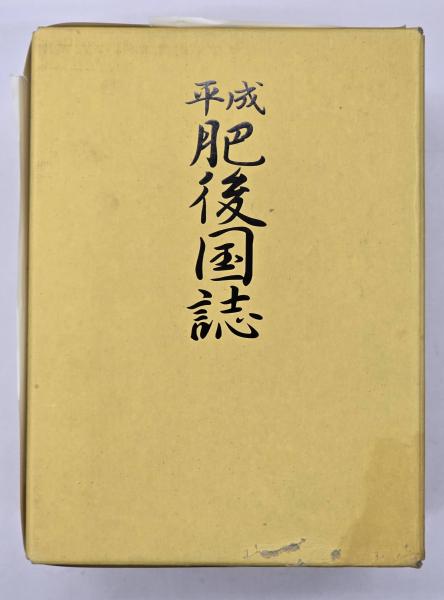 平成
肥後国誌